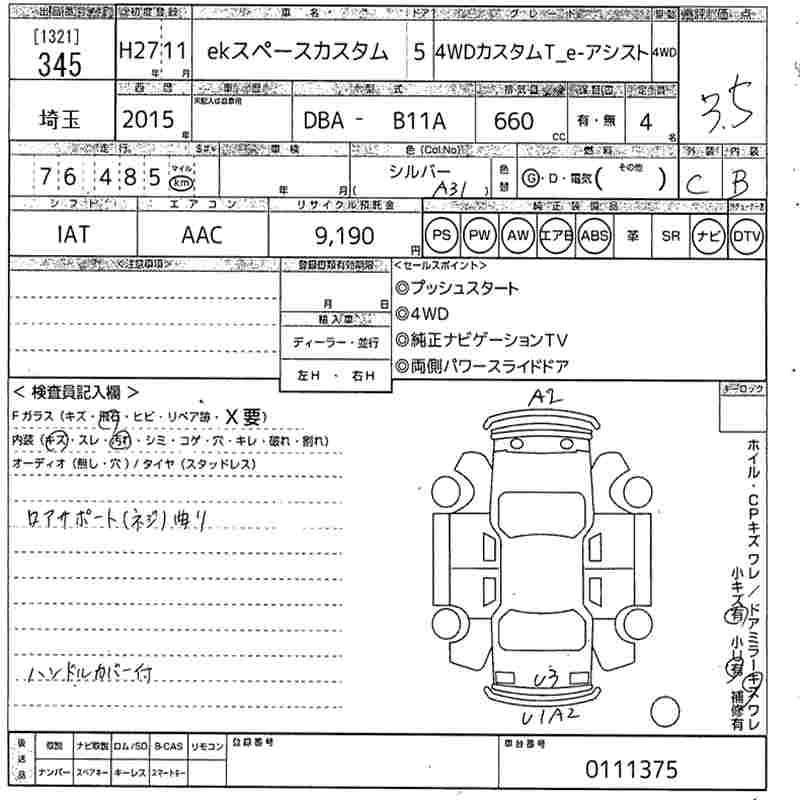 [1321]
345
初度登録
車名
ドア
グレード
車歴
評価点
H27 11
年 月
ekスペースカスタム
5
4WDカスタムT_e-アシスト
4WD
3.5
埼玉
西暦
2015年
型式
DBA - B11A
排気量
660 cc
有・無
定員
4名
走行
76,485
マイル
km
車検
年 月
色(Col.No)
シルバー
(A31)
色替
燃料
G・D・電気( その他 )
外装
C
内装
B
シフト
IAT
エアコン
AAC
リサイクル預託金
9,190円
純正装備品
PS PW AW エアB ABS 革 SR ナビ DTV
<注意事項>
登録書類有効期限
月 日
輸入車
ディーラー・並行
左H・右H
<セールスポイント>
◎プッシュスタート
◎4WD
◎純正ナビゲーションTV
◎両側パワースライドドア
<検査員記入欄>
Fガラス(キズ・飛石・ヒビ・リペア跡・X要)
内装(キズ・スレ・汚れ・シミ・コゲ・穴・キレ・破れ・割れ)
オーディオ(無し・穴)/タイヤ(スタッドレス)
ロアサポート(ネジ)曲り
ハンドルカバー付
A2
U3
U1A2
キーロック
ホイル・CPキズ ワレ/ドアミラーキズワレ
小キズ有 小U有 補修有
後送品
取説 ナビ取説 ロム/SD B-CAS リモコン
ナンバー スペアキー キーレス スマートキー
登録番号
車台番号
0111375